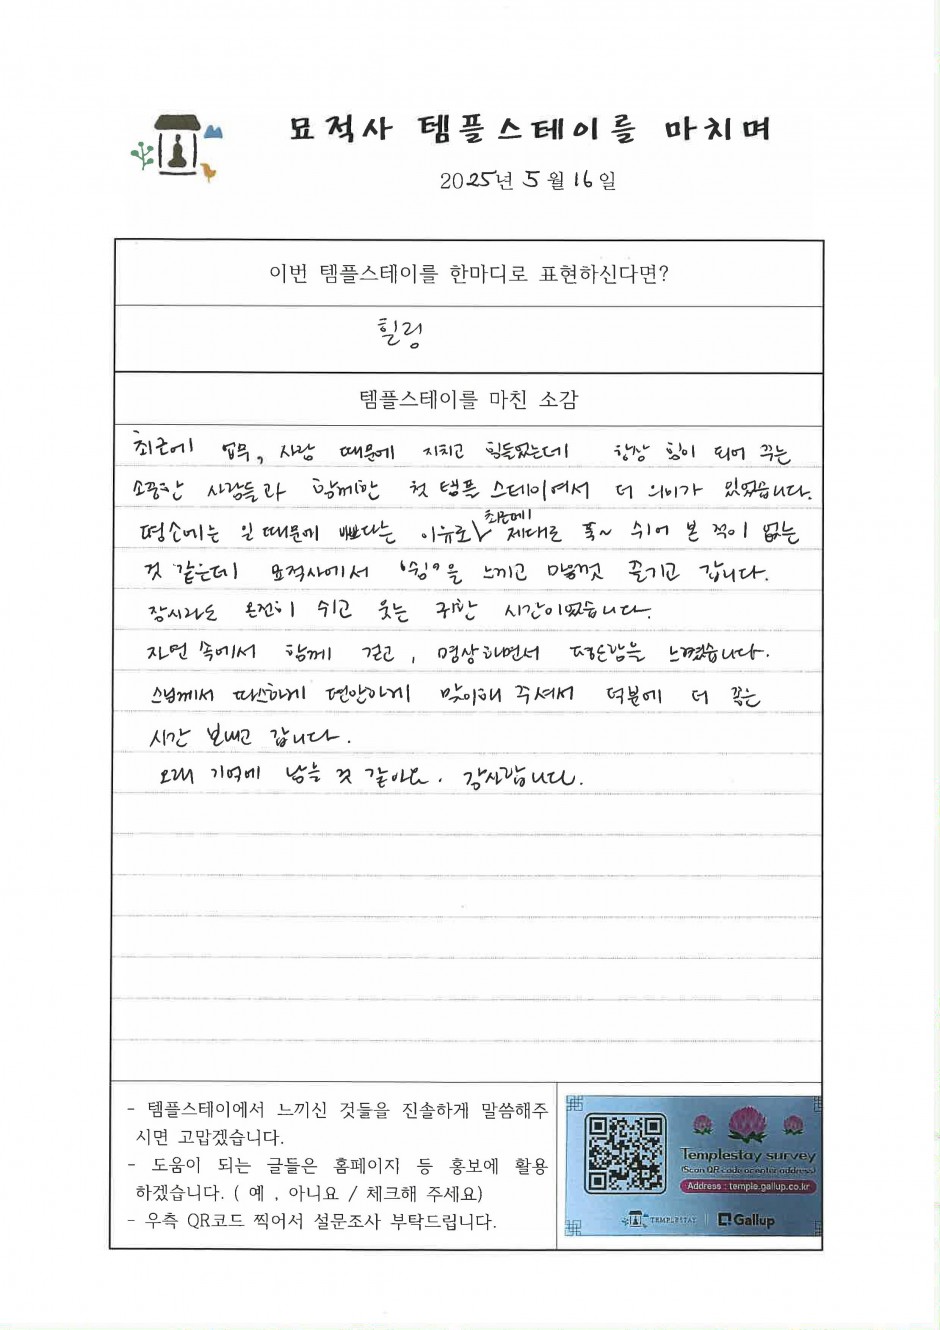 묘적사 템플스테이를 마치며
2025년 5월 16일
이번 템플스테이를 한마디로 표현하신다면?
힐링
템플스테이를 마친 소감
최근에 업무, 사람 때문에 지치고 힘들었는데 항상 힘이 되어 주는
소중한 사람들과 함께한 첫 템플스테이여서 더 의미가 있었습니다.
최근에
평소에는 일 때문에 바쁘다는 이유로 제대로 푹~ 쉬어 본 적이 없는
것 같은데 묘적사에서 '쉼'을 느끼고 마음껏 즐기고 갑니다.
잠시라도 온전히 쉬고 웃는 귀한 시간이었습니다.
자연 속에서 함께 걷고, 명상하면서 편안함을 느꼈습니다.
스님께서 따스하게 편안하게 맞이해 주셔서 덕분에 더 좋은
시간 보내고 갑니다.
오래 기억에 남을 것 같아요. 감사합니다.
- 템플스테이에서 느끼신 것들을 진솔하게 말씀해주
시면 고맙겠습니다.
- 도움이 되는 글들은 홈페이지 등 홍보에 활용
하겠습니다. ( 예 , 아니요 / 체크해 주세요)
- 우측 QR코드 찍어서 설문조사 부탁드립니다.
Templestay survey
(Scan QR code or enter address)
Address : temple.gallup.co.kr
TEMPLESTAY
Gallup